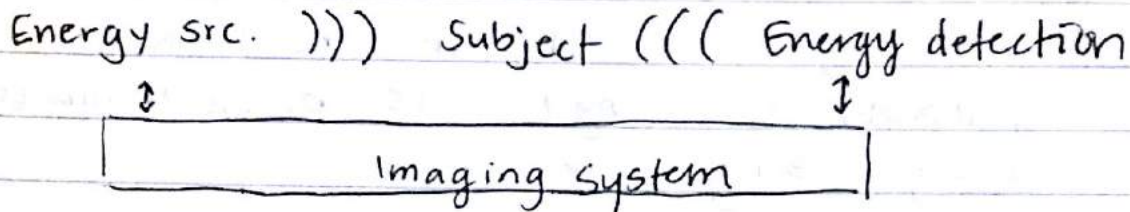 Energy src. ))) Subject ((( Energy detection
↕ ↕
Imaging system